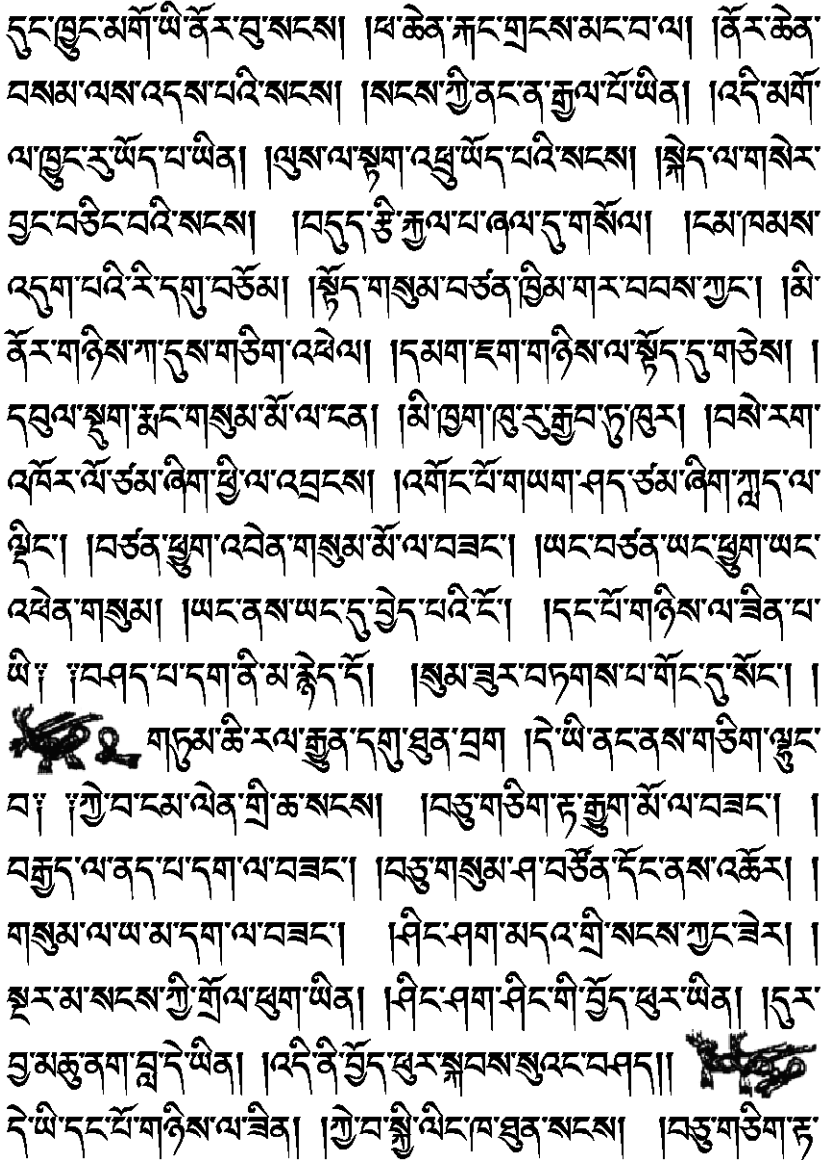 དུང་ཁྱུང་མགོ་ཡི་ནོར་བུ་སངས། །ཕ་ཆེན་རྐང་གྲངས་མང་བ་ལ། །ནོར་ཆེན་
བསམ་ལས་འདས་པའི་སངས། །སངས་ཀྱི་ནང་ན་རྒྱལ་པོ་ཡིན། །འདི་མགོ་
ལ་ཁྱུང་རུ་ཡོད་པ་ཡིན། །ལུས་ལ་སྟག་འཕྲུ་ཡོད་པའི་སངས། །སྐེད་ལ་གསེར་
བྱང་བཅིང་བའི་སངས། །བདུད་རྩི་རྐྱལ་པ་ཞལ་དུ་གསོལ། །ངམ་ཁམས་
འདུག་པའི་རི་དགུ་བཅོམ། །སྟོད་གསུམ་བཙན་ཁྲིམ་གར་བབས་ཀྱང་། །མི་
ནོར་གཉིས་ཀ་དུས་གཅིག་འཕེལ། །དམག་ཇག་གཉིས་ལ་སྟོད་དུ་གཅེས། །
དབུལ་སྡུག་རྨང་གསུམ་མོ་ལ་ངན། །མི་ཁྱག་ཁུ་རུ་རྒྱབ་ཏུ་ཁུར། །བསེ་རག་
འཁོར་ལོ་ཙམ་ཞིག་ཕྱི་ལ་འབྲངས། །འགོང་པོ་གཡག་ཤད་ཙམ་ཞིག་ཀླད་ལ་
ལྡིང་། །བཙན་ཕྱུག་འབེན་གསུམ་མོ་ལ་བཟང་། །ཡང་བཙན་ཡང་ཕྱུག་ཡང་
འཕེན་གསུམ། །ཡང་ནས་ཡང་དུ་བྱེད་པའི་ངོ་། །དང་པོ་གཉིས་ལ་ཟིན་པ་
ཡི༑ ༑བཤད་པ་དག་ནི་མ་རྙེད་དོ། །སུམ་ཟུར་བཏགས་པ་གོང་དུ་སོང་། །
གཏུམ་ཆི་རལ་རྒྱུན་དགུ་ཐུན་བྲག །དེ་ཡི་ནང་ནས་གཅིག་ལྷུང་
བ༑ ༑ཀྱེ་བ་ངམ་ལེན་གྲི་ཆ་སངས། །བཅུ་གཅིག་རྟ་རྒྱུག་མོ་ལ་བཟང་། །
བརྒྱད་ལ་ནད་པ་དག་ལ་བཟང་། །བཅུ་གསུམ་ཤ་བཙོན་དོང་ནས་འཆོར། །
གསུམ་ལ་ཡ་མ་དག་ལ་བཟང་། །ཤིང་ཤག་མདའ་གྲི་སངས་ཀྱང་ཟེར། །
སྔར་མ་སངས་ཀྱི་གྲོལ་ཕུག་ཡིན། །ཤིང་ཤག་ཤིང་གི་བྱོད་ཕུར་ཡིན། །དུར་
བྱ་མཆུ་ནག་བླ་དེ་ཡིན། །འདི་ནི་བྱོད་ཕུར་སྐབས་སུའང་བཤད།།
དེ་ཡི་དང་པོ་གཉིས་ལ་ཟིན། །ཀྱེ་བ་སྐྱི་ལིང་ཁ་ཐུན་སངས། །བཅུ་གཅིག་རྟ་